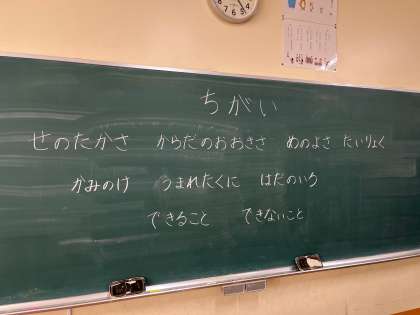 ちがい
せのたかさ からだのおおきさ めのよさ たいりょく
かみのけ うまれたくに はだのいろ
できること できないこと